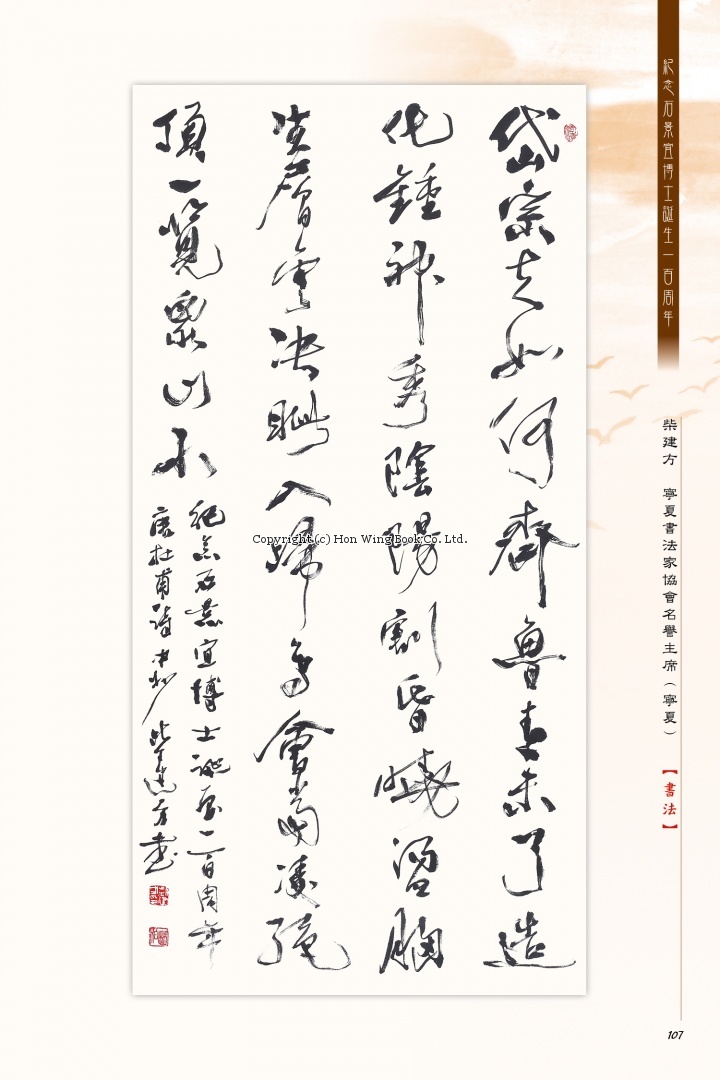 紀念石景宜博士誕生一百周年
柴建方 寧夏書法家協會名譽主席（寧夏）
【書法】
岱宗夫如何齊魯青未了造
化鍾神秀陰陽割昏曉盪胸
生層雲決眦入歸鳥會當凌絕
頂一覽眾山小
紀念石景宜博士誕辰一百周年
唐杜甫詩 柴建方書
Copyright (c) Hon Wing Book Co. Ltd.
107